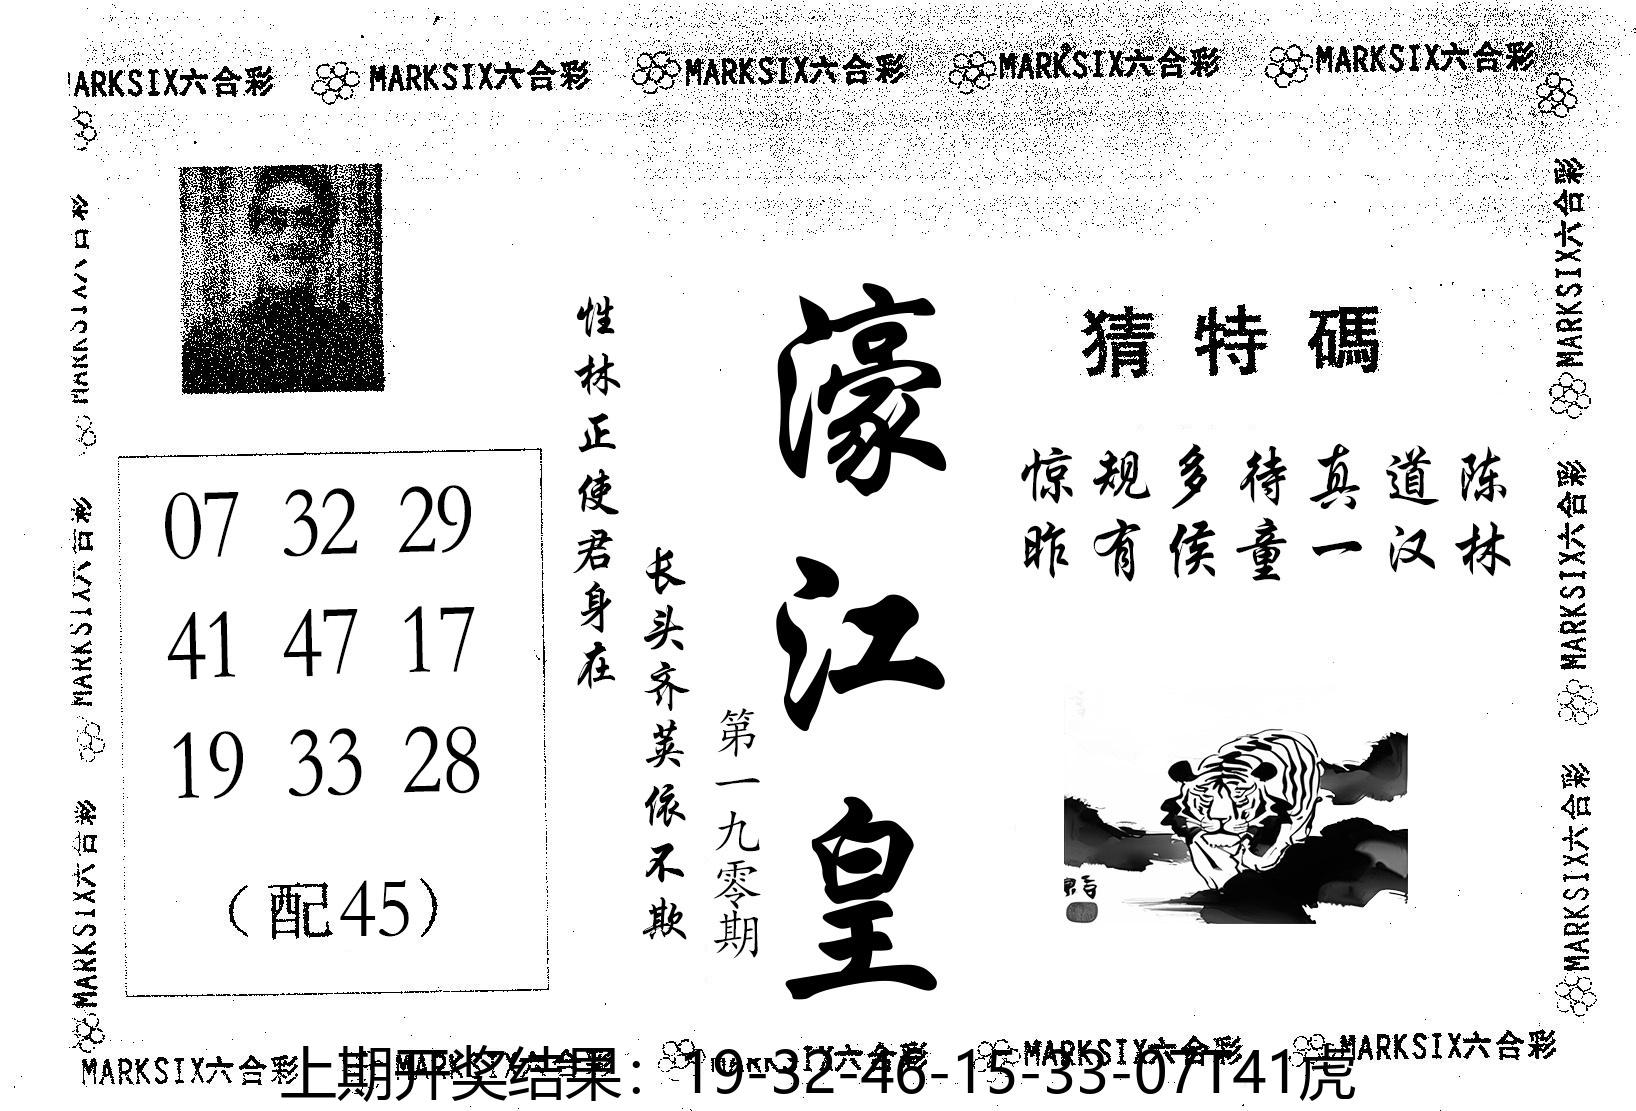 MARKSIX六合彩 MARKSIX六合彩 MARKSIX六合彩 MARKSIX六合彩 MARKSIX六合彩
MARKSIX六合彩
MARKSIX六合彩
MARKSIX六合彩
猜特碼
惊规多待真道陈
昨有侯童一汉林
濠江皇
第一九零期
长头齐英依不欺
性林正使君身在
07 32 29
41 47 17
19 33 28
(配45)
MARKSIX六合彩
MARKSIX六合彩
MARKSIX六合彩
MARKSIX六合彩 MARKSIX六合彩 MARKSIX六合彩 MARKSIX六合彩 MARKSIX六合彩
上期开奖结果：19-32-46-15-33-07T41虎